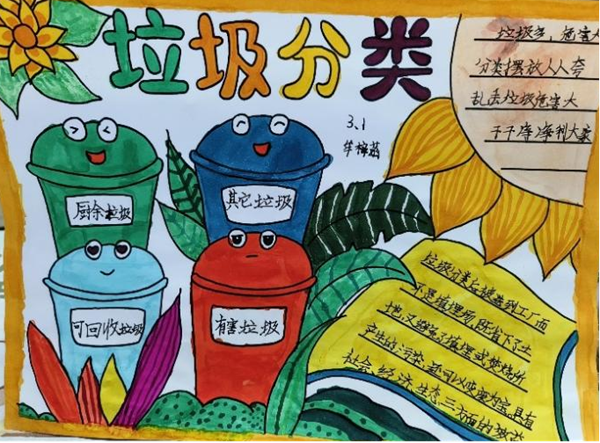 垃圾分类
垃圾多，危害
分类摆放人人夸
乱丢垃圾危害大
干干净净利大家
3.1
厨余垃圾
其它垃圾
可回收垃圾
有害垃圾
垃圾分类后被送到工厂而
不是填埋场，既省下了土
地，又避免了填埋或焚烧所
产生的污染，还可以变废为宝，具有
社会、经济、生态三方面的效益